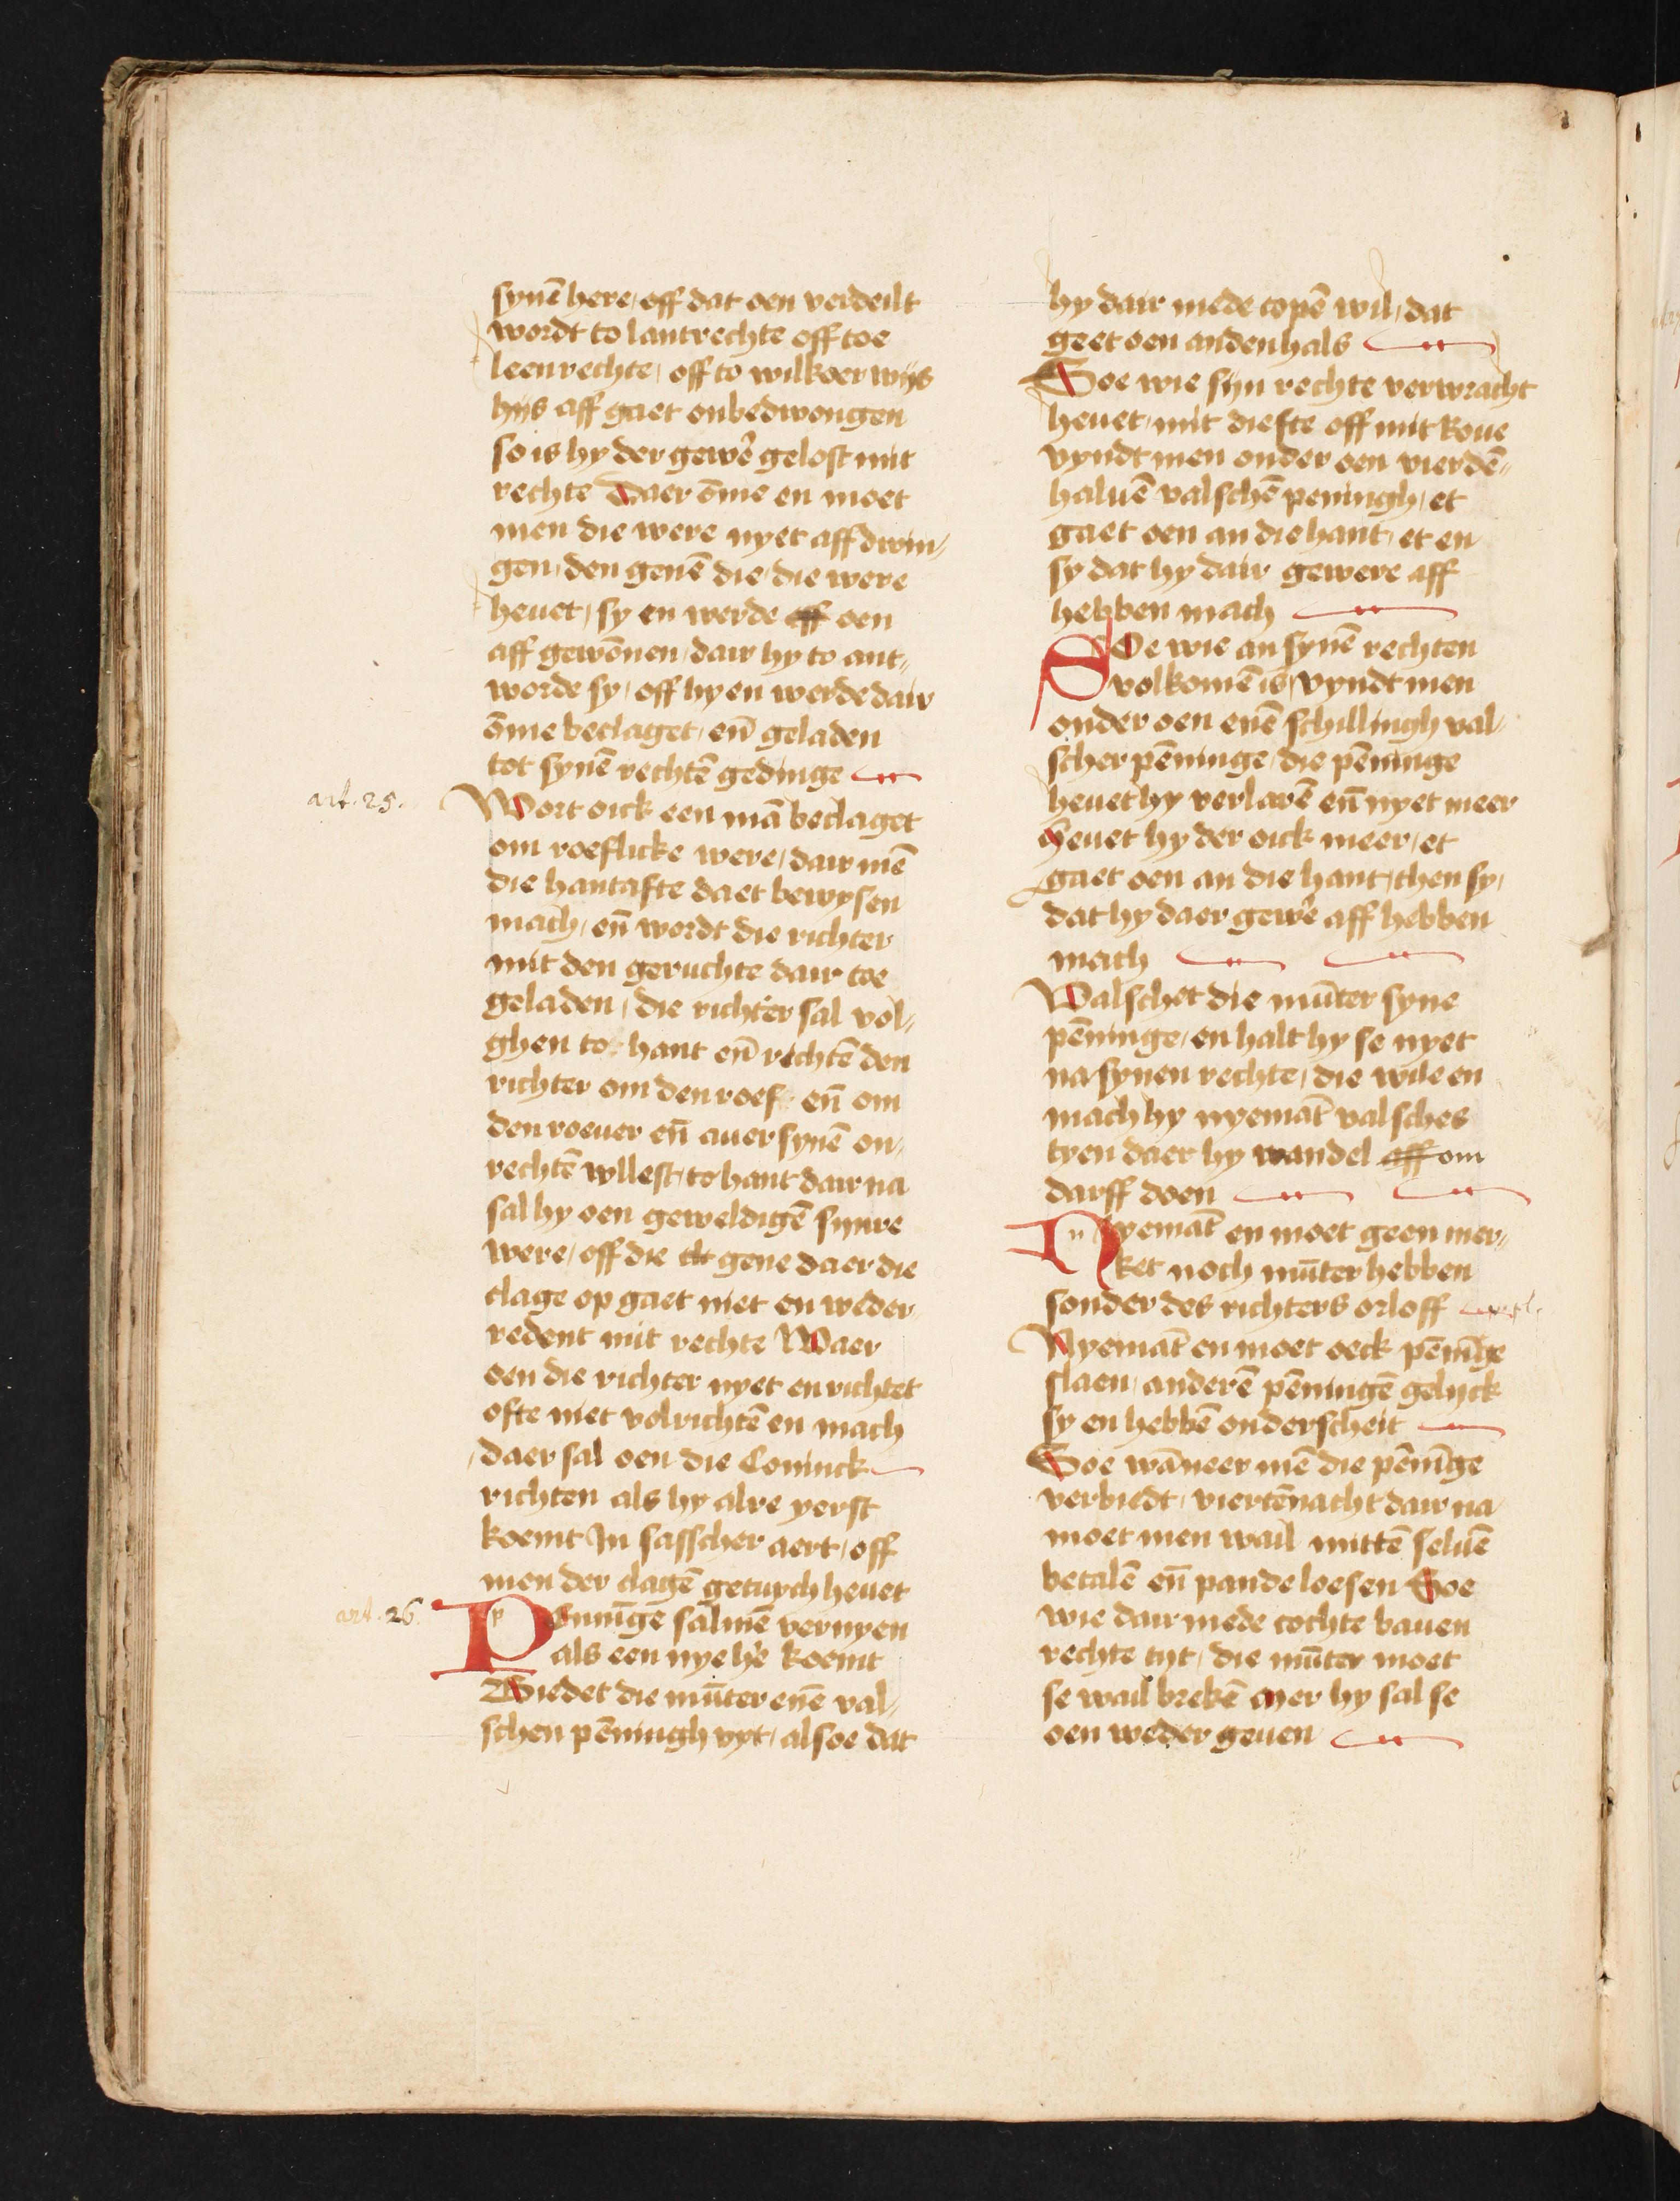 synē here / off dat oen verdeilt
wordt to lantrechte off toe
leenrechte / off to wilkoer wijs
hijs aff gaet onbedwongen
so is hy der gewe͛ gelost mit
rechte Daer ōme en moet
men die were nyet aff dwin„
gen / den genē die / die were
heuet / sy en werde off oen
aff gewōnen / dair hy to ant„
worde sy / off hy en werde dair
ōme beclaget / en̄ geladen
tot synē rechtē gedinge
art. 25.
Wort oick een mā beclaget
om roeflicke were / dair mē
die hantafte daet bewysen
mach / en̄ wordt die richter
mit den geruchte dair toe
geladen / die richter sal vol„
ghen to hant en̄ rechtē den
richter om den roef en̄ om
den roeuer en̄ auer synē on„
rechtē vllest / to hant dair na
sal hy oen geweldigē synre
were / off die gene daer die
clage op gaet niet en weder„
redent mit rechte Waer
oen die richter nyet en richtet
ofte niet volrichtē en mach
/ daer sal oen die Coninck
richten als hy alre yerst
koemt In sasscher aert / off
men der clagē getuych heuet
art. 26.
Pēnīge salmē vernyen
als een nye he͛ koemt
Biedet die mūter enē val„
schen pēningh vyt / alsoe dat
hy dair mede copē wil / dat
geet oen an den hals
Soe wie sijn rechte verwracht
heuet / mit diefte off mit Roue
vyndt men onder oen vierdē„
haluē valschē peningh / et
gaet oen an die hant / et en
sy dat hy dair gewere aff
hebben mach
SOe wie an synē rechten
volkomē is / vyndt men
onder oen enē schillingh val„
scher pēninge / die pēninge
heuet hy verlarē en̄ nyet meer
Heuet hy der oick meer / et
gaet oen an die hant / then sy /
dat hy daer gewe͛ aff hebben
mach
Valschet die mūter syne
pēninge / en halt hy se nyet
na synen rechte / die wile en
mach hy nyemāt valsches
tyen daer hy wandel aff om
darff doen
Nyemāt en moet geen mer„
ket noch mūter hebben
sonder des richters orloff
Nyemāt en moet oeck pēnīge
slaen / anderē pēningē gelijck
sy en hebbē onderscheit
Soe wāneer mē die pēnīge
verbiedt / viertēnacht dair na
moet men wail mittē seluē
betalē en̄ pande loesen Soe
wie dair mede cochte bauen
rechte tijt / die mūter moet
se wail brekē Mer hy sal se
oen weder geuen